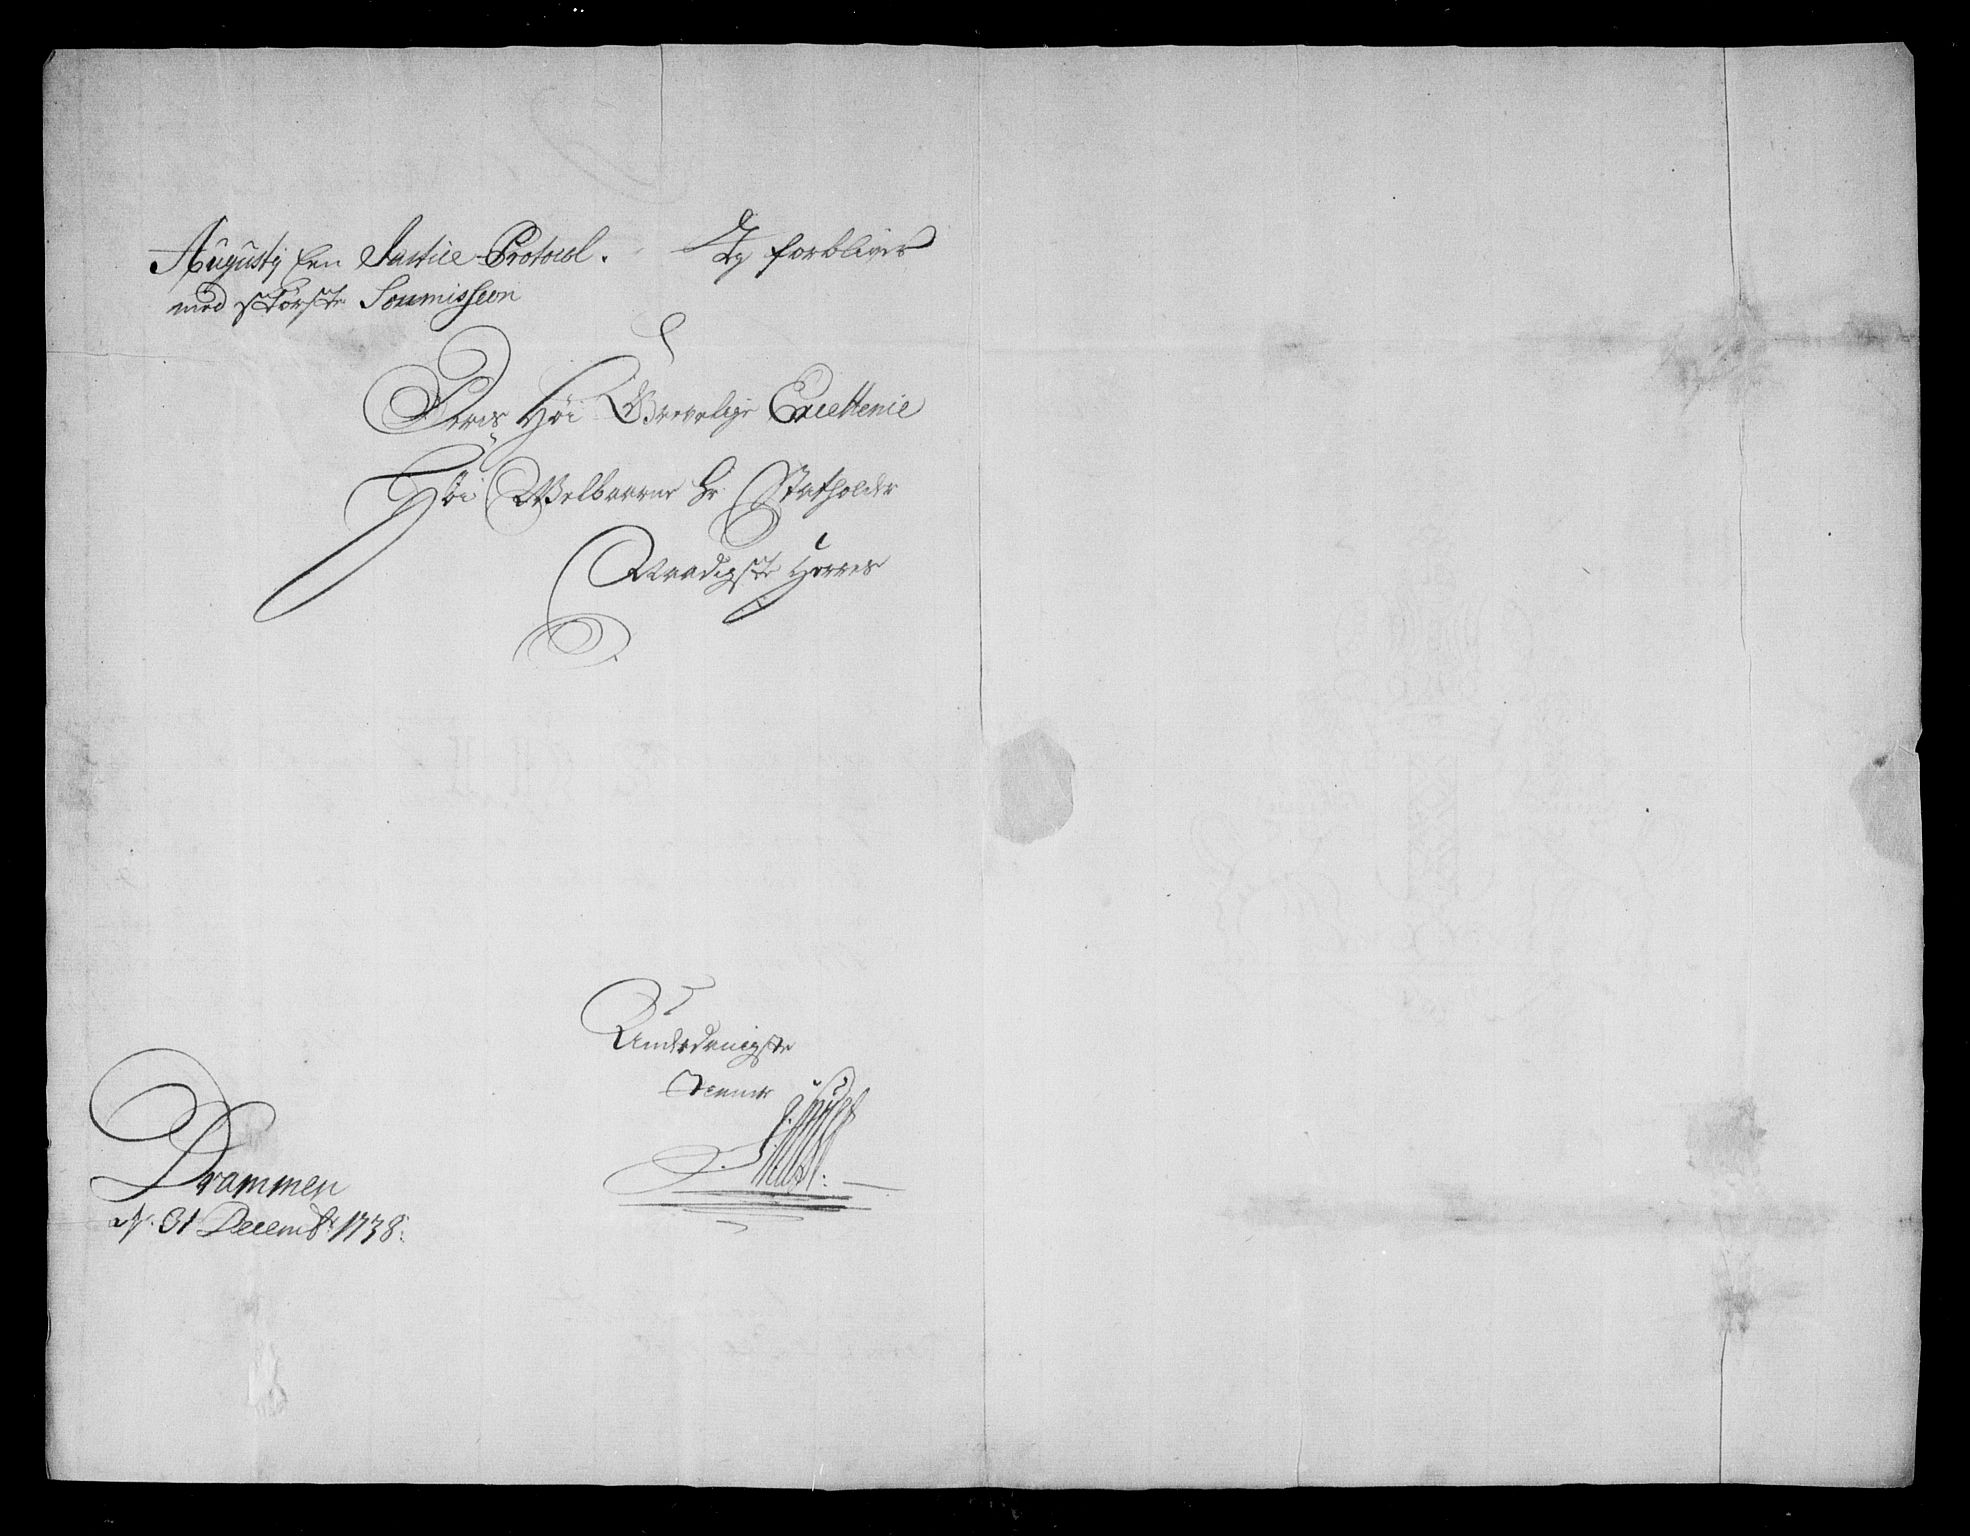 Augustj een Justice Protocol. Jeg forbliver
med største Soumission
Deris Høi Grevelige Excellenie
Høi Welbaarne Hr Statholder
Naadigste Herres
Underdanigste
Tiener
Drammen
d. 31 Decembr 1738.